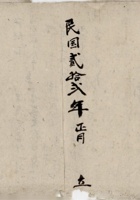 民国貳拾弍年正月
立